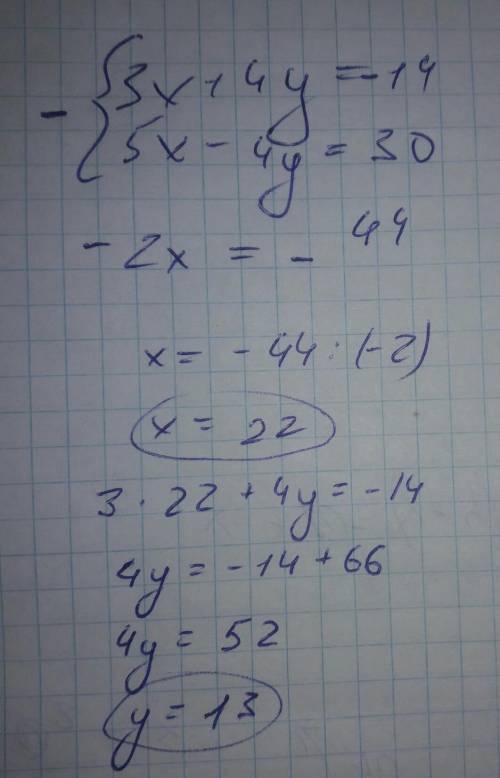 - { 3x + 4y = -14
5x - 4y = 30
- 2x = - 44
x = - 44 : (-2)
x = 22
3 · 22 + 4y = -14
4y = -14 + 66
4y = 52
y = 13